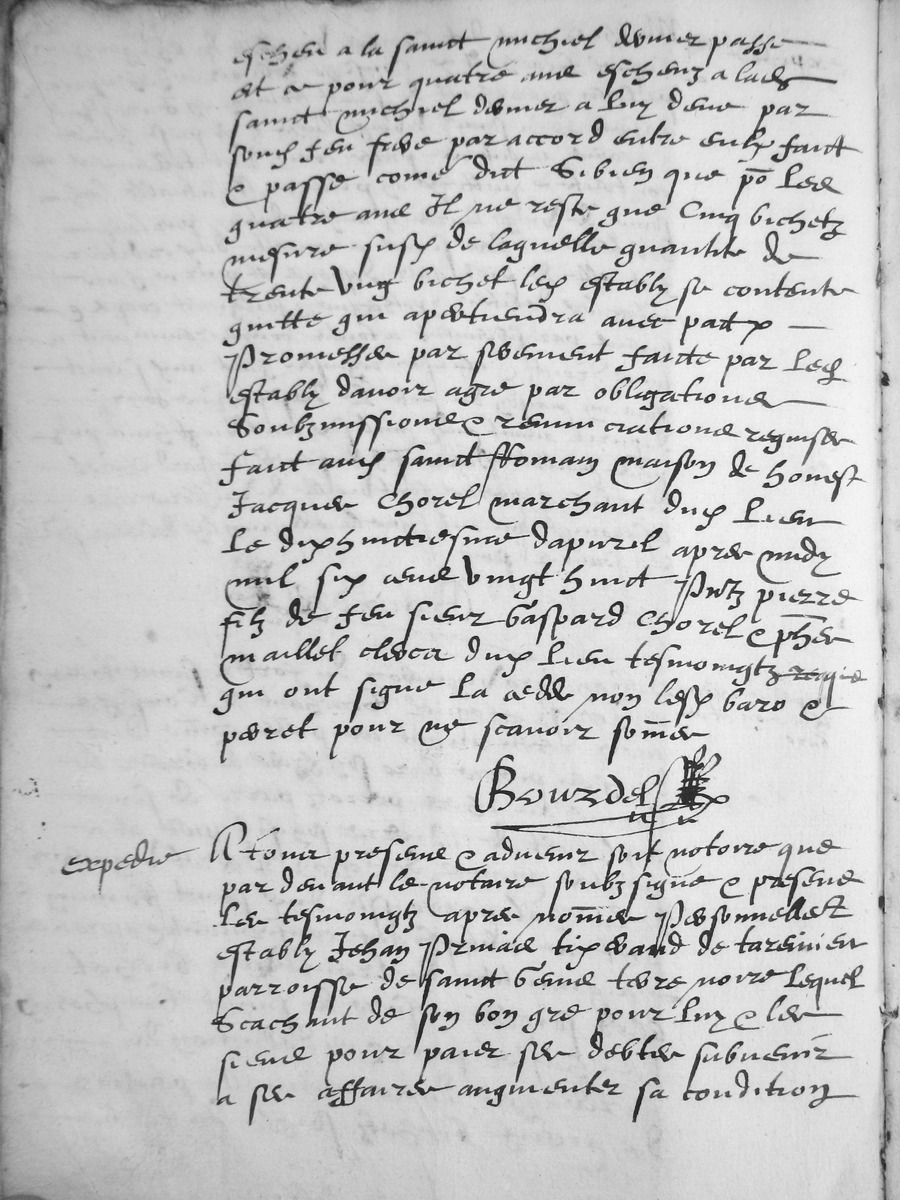 escheu a la sainct michiel dernier passe
et ce pour quatre ans escheuz a lad
sainct michiel dernier a luy deue par
sond feu frere par accord entre eulx faict
& passe come dict Sibien que po les
quatre ans Il ne reste que Cinq bichetz
mesure susd de laquelle quantite de
trente Ung bichet led estably se contente
quitte qui apertiendra avec pact
Promesse par serement faicte par led
estably davoir agre par obligations
Soubzmissions & renunciations requises
faict aud sainct Romain maison de honest
Jacques Chorel marchant dud Lieu
Le dixhuictiesme dapvril apres midy
mil six cens vingt huict Pntz pierre
filz de feu sieur Gaspard Chorel &
maillet clerc dud Lieu tesmoingtz
qui ont signe La cedde non lesd baro &
peret pour ne scavoir somes
Bourdel
expedie
A tous presens & advenir soit notoire que
par devant le notaire soubzsigne & presens
Les tesmoingtz apres nomes Personnellemt
estably Jehan tixerand de
parroisse de sainct Genis terre noire Lequel
Scachant de son bon gre pour luy & les
siens pour paier ses debtes subvenir
a ses affaires augmenter sa condition